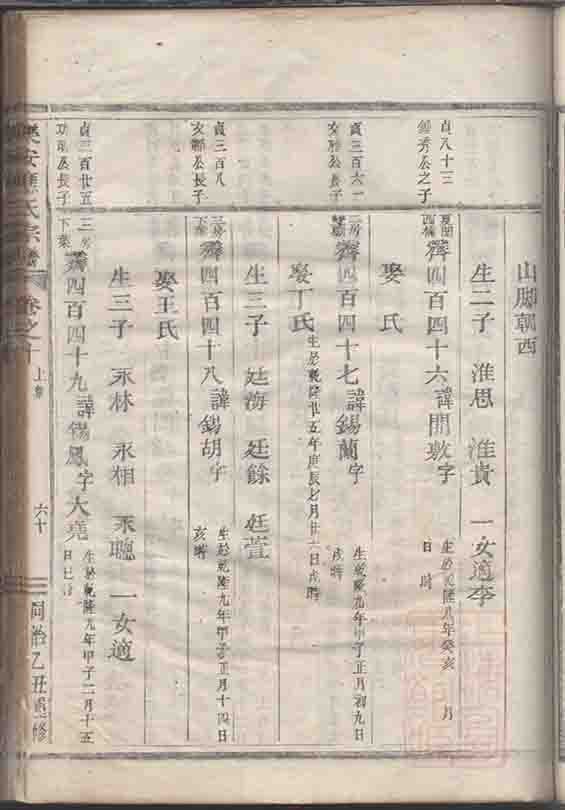 山脚朝西
生二子 淮思 淮貴 一女適李
貞八十三
鍾秀公之子
齊四百四十六諱開敷字
生於乾隆八年癸亥 月
日 時
娶 氏
貞三百六一
公長子
二房
齊四百四十七諱錫蘭字
生乾隆九年甲子正月初九日
戌時
娶丁氏
生於乾隆廿五年庚辰七月廿六日戌時
生三子 廷海 廷餘 廷萱
貞三百八
公長子
三房
齊四百四十八諱錫胡字
生於乾隆九年甲子正月十四日
亥時
娶王氏
生三子 永林 永相 永聰 一女適
貞三百廿五
公長子
三房
下集
齊四百四十九諱錫鳳字大堯
生於乾隆九年甲子二月十五
日巳時
氏宗譜
卷之十
上集
六十
同治乙丑重修